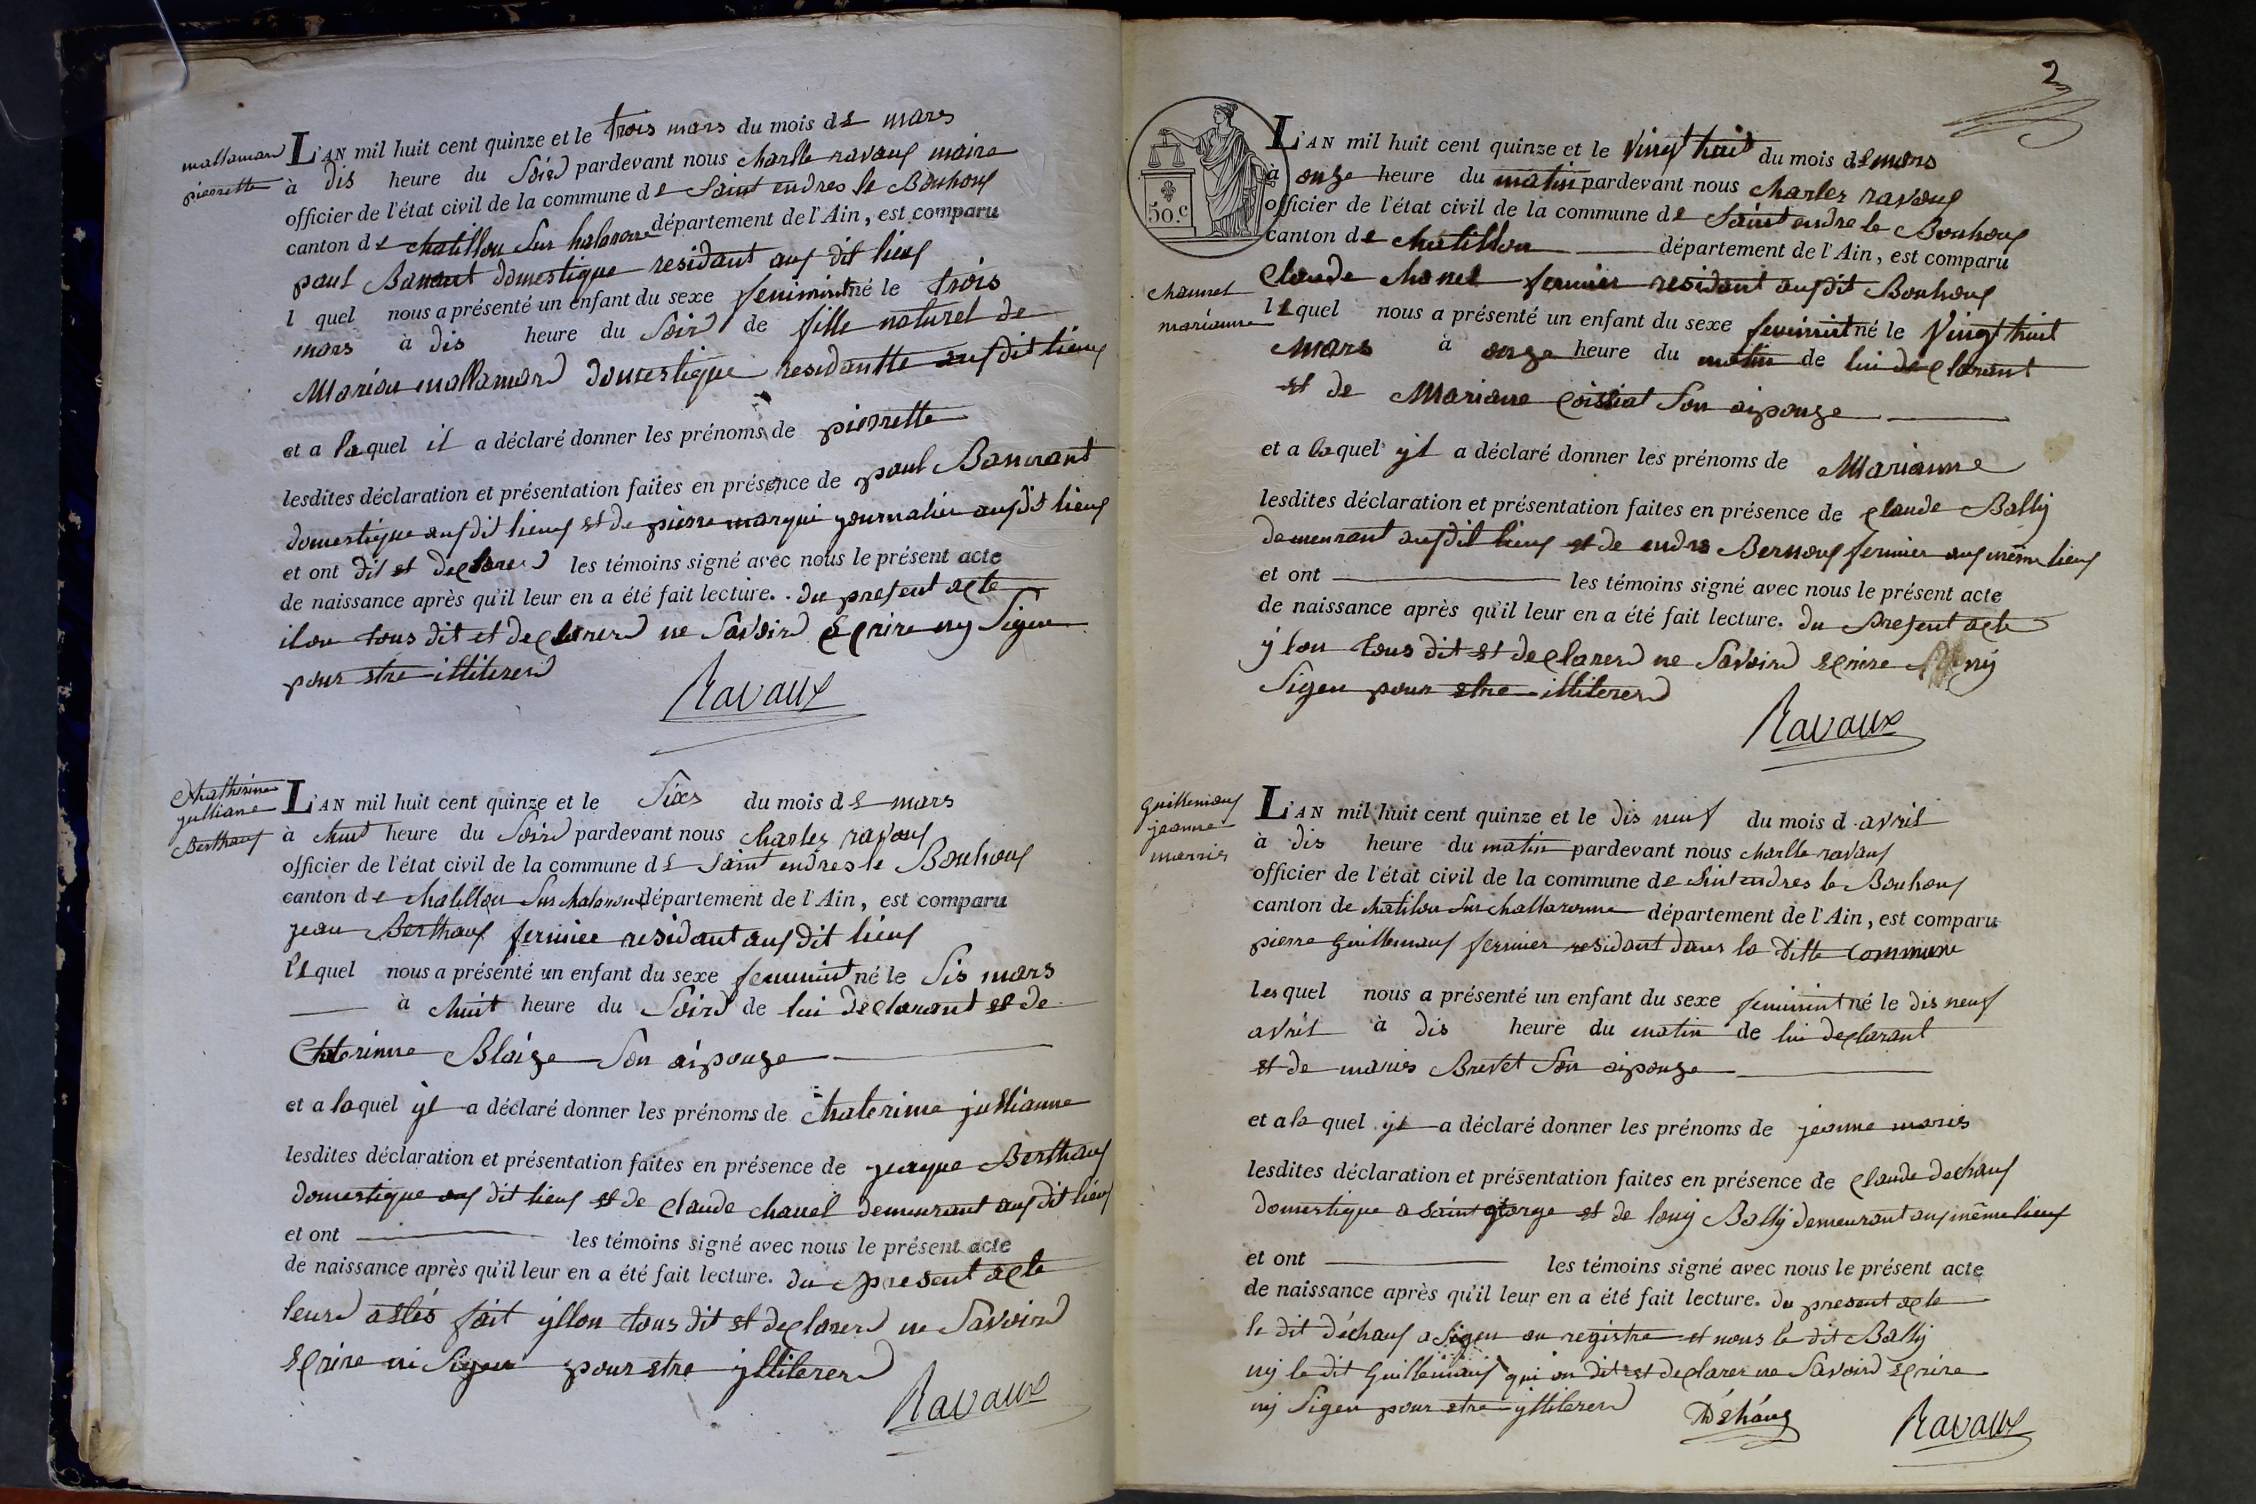 mallamard
pierrette
L'AN mil huit cent quinze et le trois mars du mois de mars
à dis heure du Soird pardevant nous charlle ravaux maire
officier de l'état civil de la commune de Saint endres le Bouhoux
canton de chatillon Sur halaronne département de l'Ain, est comparu
paul domestique residant aux dit lieux
l quel nous a présenté un enfant du sexe feminint né le trois
mars à dis heure du Soird de fille naturel de
Marian mallamard domestique residantte aux dit lieux
et a laquel il a déclaré donner les prénoms de pierrette
lesdites déclaration et présentation faites en présence de paul
domestique aux dit lieux et de pierre marqui journalier aux dit lieux
et ont dit et declarerd les témoins signé avec nous le présent acte
de naissance après qu'il leur en a été fait lecture. du present acte
ilon tous dit et declarerd ne Savoird Ecrire ny Sigen
pour etre illitererd
Ravaux
Chatherine
julliane
Berthaux
L'AN mil huit cent quinze et le Sixs du mois de mars
à huit heure du Soird pardevant nous charles ravaux
officier de l'état civil de la commune de Saint endres le Bouhoux
canton de chatillon Sur chalaronne département de l'Ain, est comparu
jean Berthaux fermier residant aux dit lieux
lequel nous a présenté un enfant du sexe feminint né le Sis mars
à huit heure du Soird de lui declarant et de
Chaterinne Blaize Son aipouze
et a laquel yl a déclaré donner les prénoms de Chaterinne jullianne
lesdites déclaration et présentation faites en présence de jacque Berthaux
domestique aux dit lieux et de claude chanel demeurant aux dit lieux
et ont les témoins signé avec nous le présent acte
de naissance après qu'il leur en a été fait lecture. du present acte
leurd fait yllon tous dit et declarerd ne Savoird
Ecrire ni Sigen pour etre yllitererd
Ravaux
2
50.c
channel
marianne
L'AN mil huit cent quinze et le Vingt huit du mois de mars
à onze heure du matin pardevant nous charles ravaux
officier de l'état civil de la commune de Saint endre le Bouhoux
canton de chatillon département de l'Ain, est comparu
Claude chanel fermier residant aux dit Bouhoux
lequel nous a présenté un enfant du sexe feminint né le Vingt huit
Mars à onze heure du matin de lui declarant
et de Marianne Coissiat Son aipouze
et a laquel yl a déclaré donner les prénoms de Marianne
lesdites déclaration et présentation faites en présence de claude Bally
demeurant aux dit lieux et de endre Bernoux fermier aux même lieux
et ont les témoins signé avec nous le présent acte
de naissance après qu'il leur en a été fait lecture. du present acte
y lon tous dit et declarerd ne Savoird Ecrire ny
Sigen pour etre illitererd
Ravaux
Guillemaux
jeanne
marris
L'AN mil huit cent quinze et le dis neuf du mois d avril
à dis heure du matin pardevant nous charlle ravaux
officier de l'état civil de la commune de Sint endres le Bouhoux
canton de chatilon Sur challaronne département de l'Ain, est comparu
pierre Guillemaux fermier residant dans la ditte commune
lesquel nous a présenté un enfant du sexe feminint né le dis neuf
avril à dis heure du matin de lui declarant
et de maries Brevet Son aipouze
et a la quel yl a déclaré donner les prénoms de jeanne maries
lesdites déclaration et présentation faites en présence de claude dechaux
domestique a Saint gorge et de louy Bally demeurant aux même lieux
et ont les témoins signé avec nous le présent acte
de naissance après qu'il leur en a été fait lecture. du present acte
le dit déchaux a Sigen au registre et nous le dit Bally
ny le dit Guillemaux qui on dit et declarer ne Savoird Ecrire
ny Sigen pour etre yllitererd
Déhaux
Ravaux